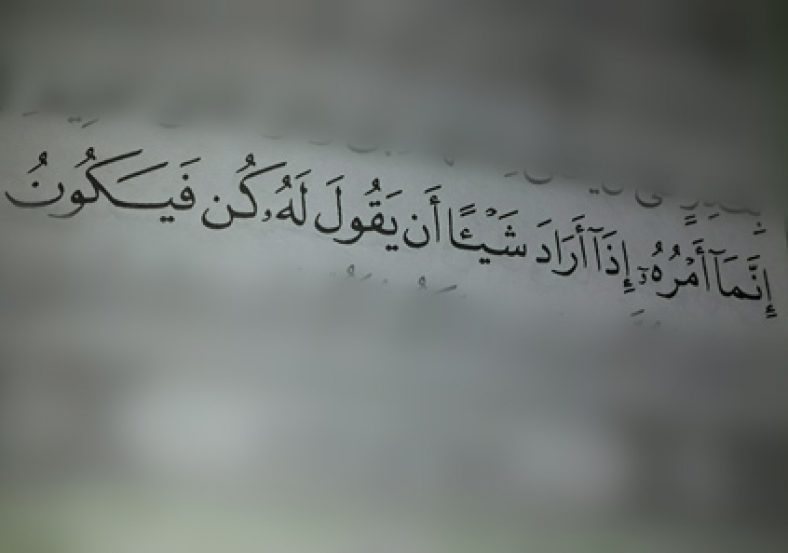 إِنَّمَآ أَمْرُهُۥٓ إِذَآ أَرَادَ شَيْـًٔا أَن يَقُولَ لَهُۥ كُن فَيَكُونُ